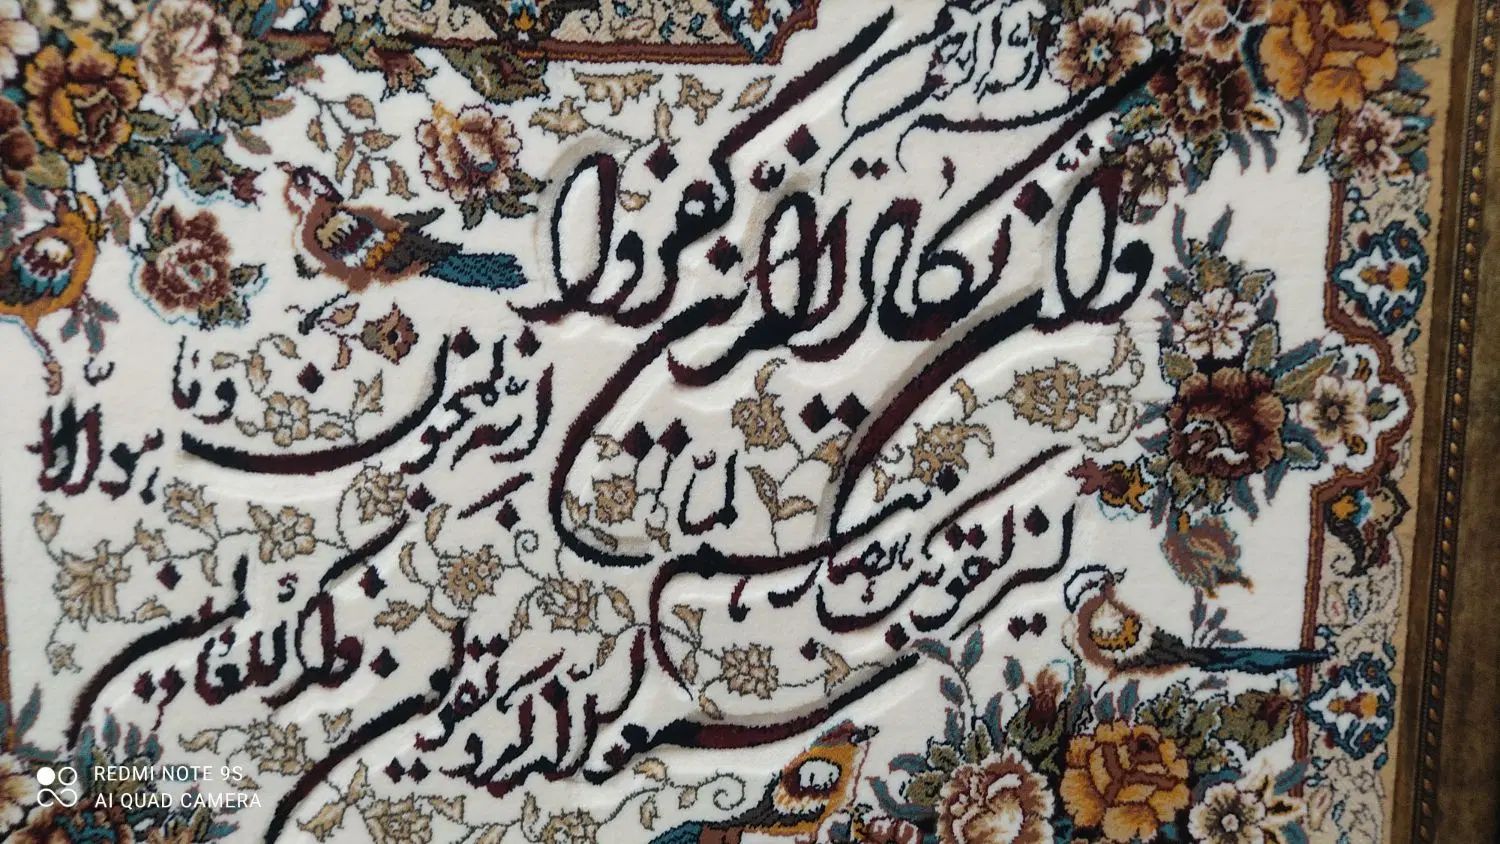 وان یکاد الذین کفروا
لیزلقونک بابصارهم لما
سمعوا الذکر و یقولون
انه لمجنون و ما هو الا
ذکر للعالمین
REDMI NOTE 9S
AI QUAD CAMERA